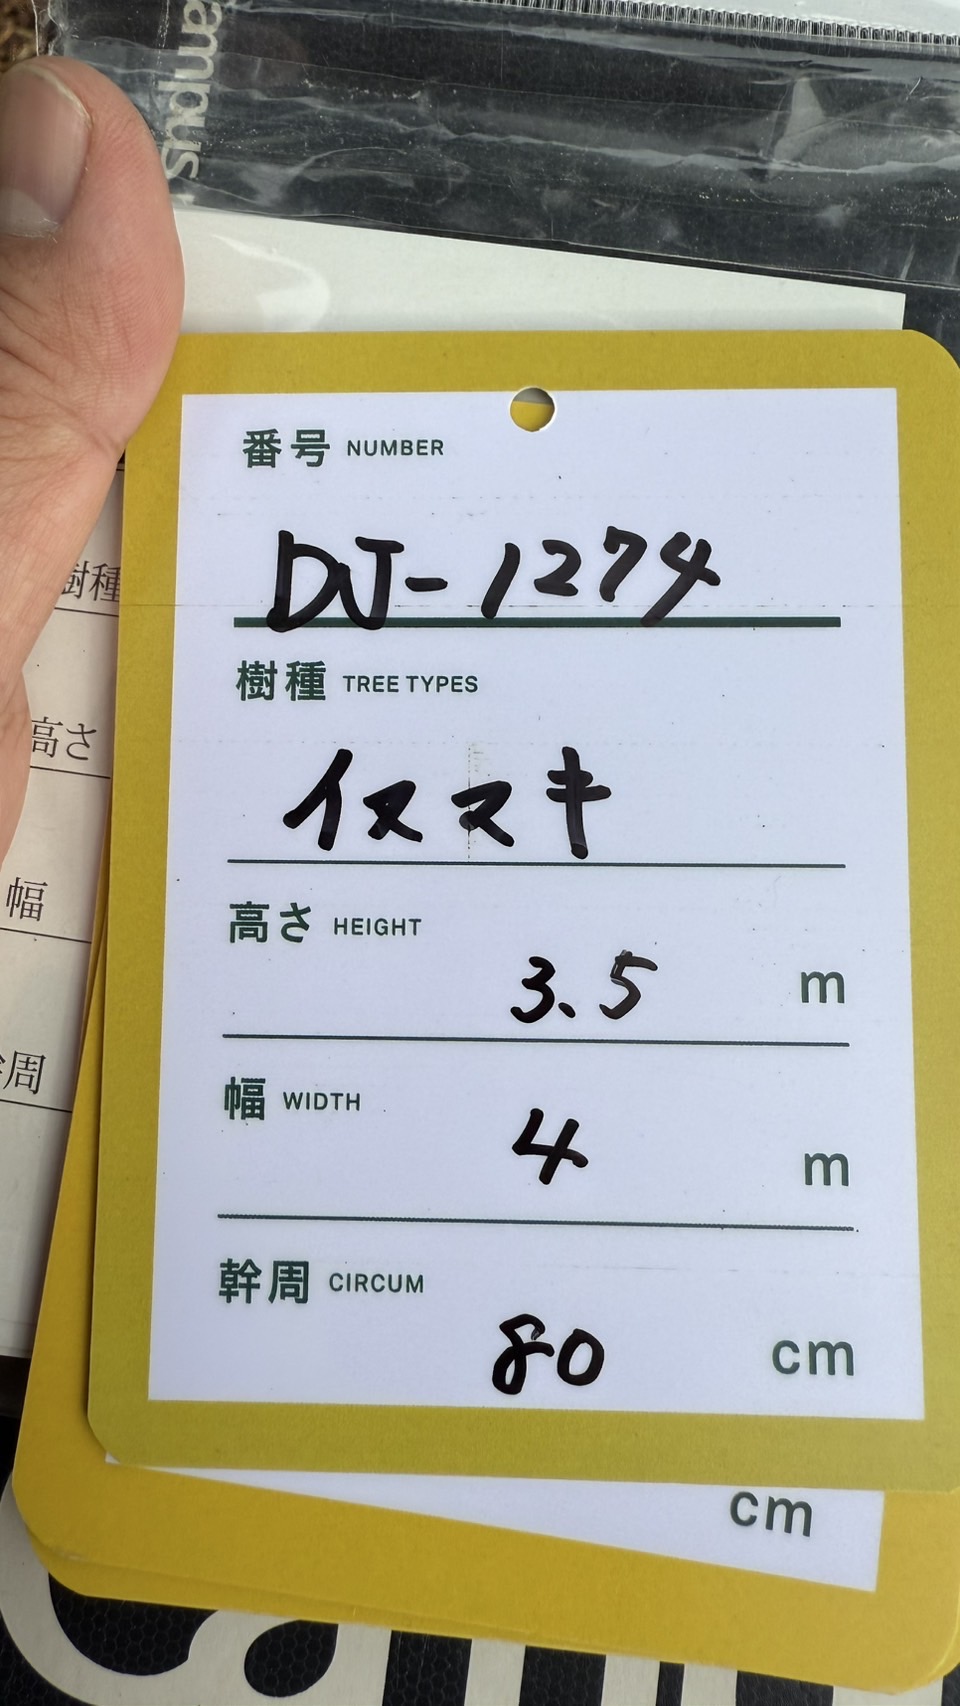 ampus
番号 NUMBER
DJ-1274
樹種 TREE TYPES
イヌマキ
高さ HEIGHT
3.5 m
幅 WIDTH
4 m
幹周 CIRCUM
80 cm
cm
樹種
高さ
幅
周